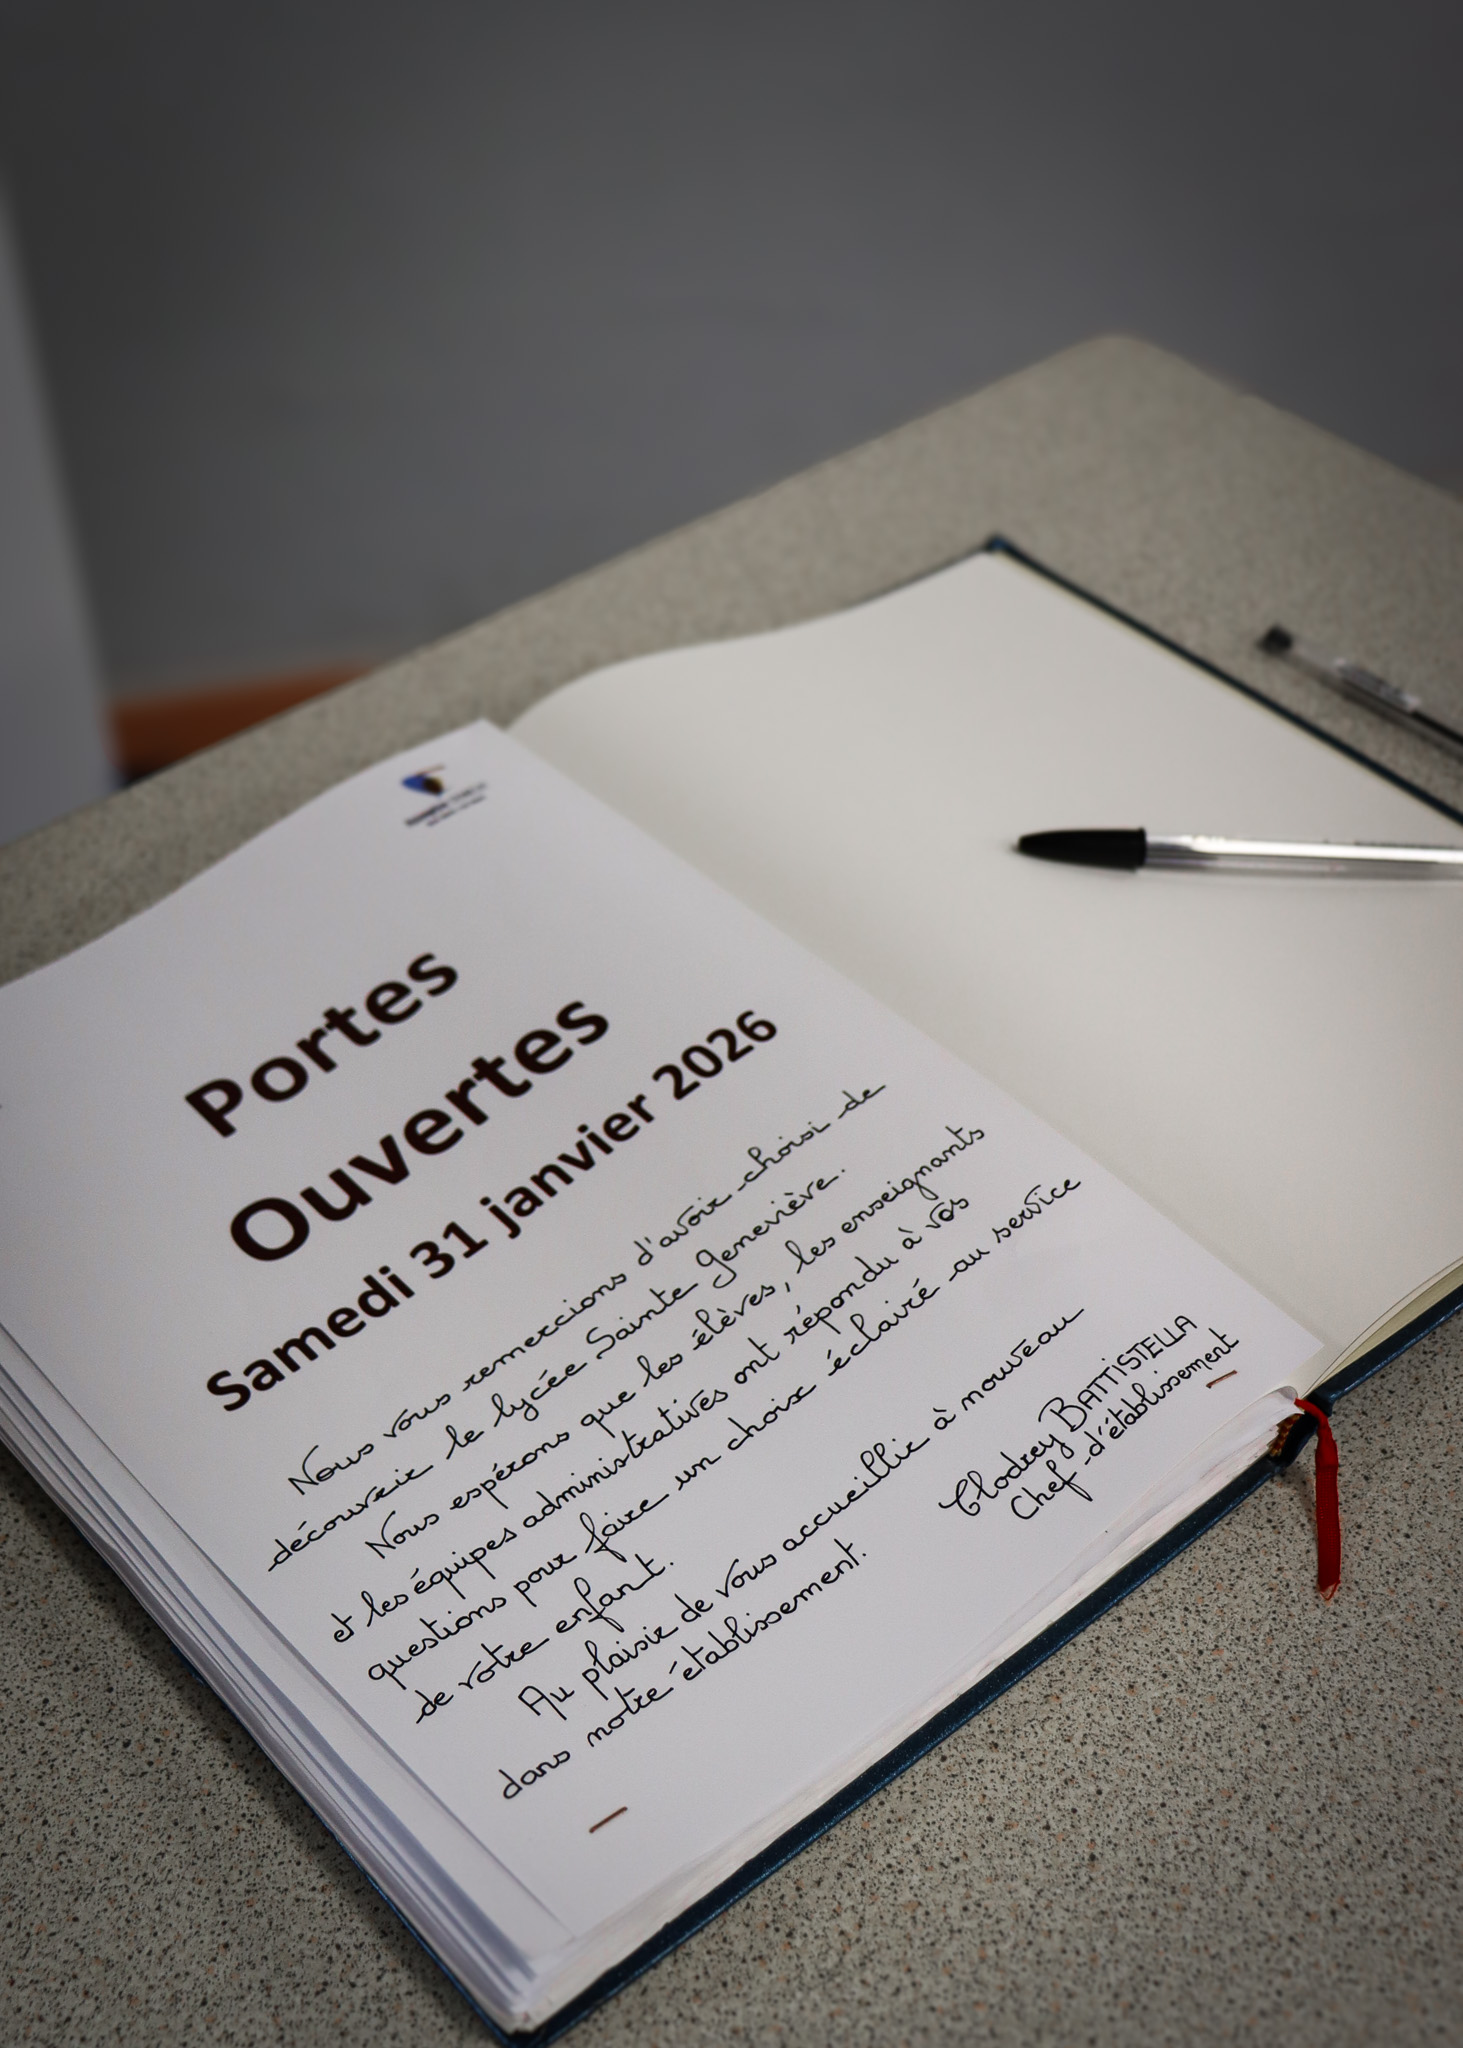 Portes
Ouvertes
Samedi 31 janvier 2026
Nous vous remercions d'avoir choisi de
découvrir le lycée Sainte Geneviève.
Nous espérons que les élèves, les enseignants
et les équipes administratives ont répondu à vos
questions pour faire un choix éclairé au service
de votre enfant.
Au plaisir de vous accueillir à nouveau
dans notre établissement.
Clodrey BATTISTELLA
Chef d'établissement